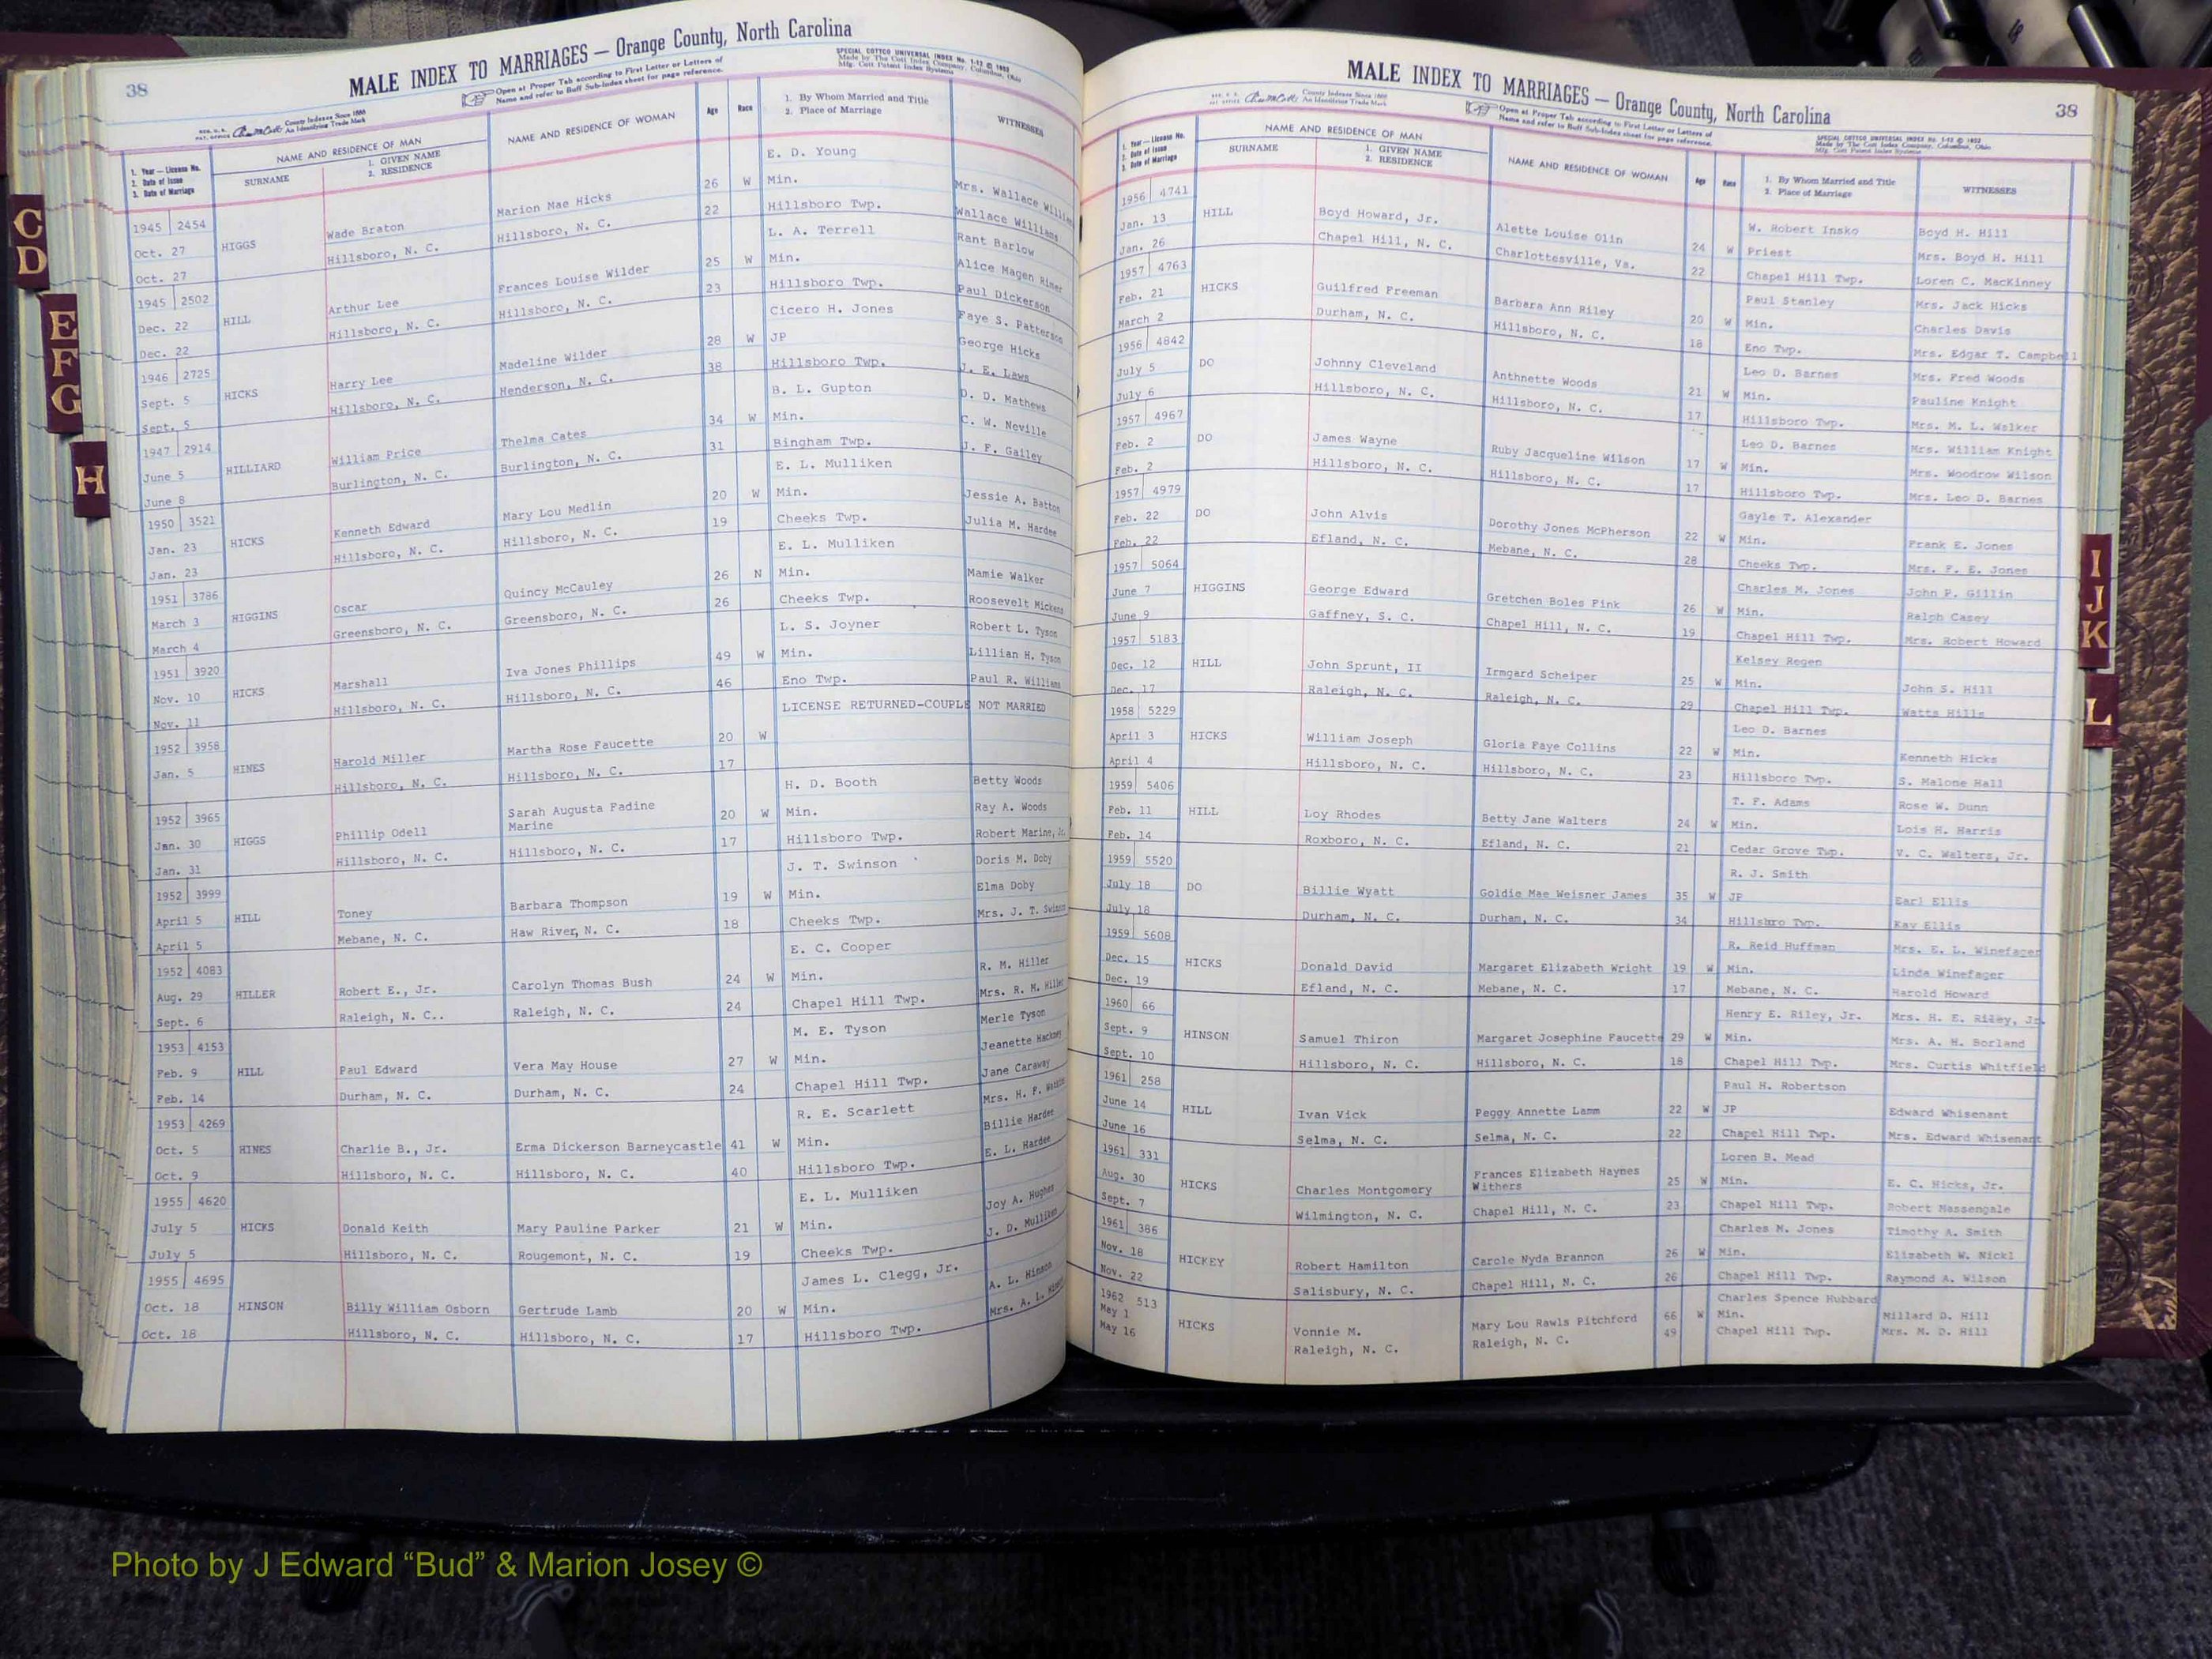 38
MALE INDEX TO MARRIAGES — Orange County, North Carolina
Open at Proper Tab according to First Letter or Letters of
Name and refer to Buff Sub-Index sheet for page reference.
SPECIAL COTTCO UNIVERSAL INDEX No. 1-12 © 1952
Made by The Cott Index Company, Columbus, Ohio
Mfg. Cott Patent Index Systems
REG. U. S. PAT. OFFICE
County Indexes Since 1888
An Identifying Trade Mark
1. Year — License No.
2. Date of Issue
3. Date of Marriage
NAME AND RESIDENCE OF MAN
SURNAME
1. GIVEN NAME
2. RESIDENCE
NAME AND RESIDENCE OF WOMAN
Age
Race
1. By Whom Married and Title
2. Place of Marriage
WITNESSES
1945 2454 E. D. Young Mrs. Wallace
Oct. 27 HIGGS Wade Braton Marion Mae Hicks 26 W Min. Wallace Williams
Oct. 27 Hillsboro, N. C. Hillsboro, N. C. 22 Hillsboro Twp. Rant Barlow
1945 2502 L. A. Terrell Alice Magen Rimer
Dec. 22 HILL Arthur Lee Frances Louise Wilder 25 W Min. Paul Dickerson
Dec. 22 Hillsboro, N. C. Hillsboro, N. C. 23 Hillsboro Twp. Faye S. Patterson
1946 2725 Cicero H. Jones George Hicks
Sept. 5 HICKS Harry Lee Madeline Wilder 28 W JP J. E. Laws
Sept. 5 Hillsboro, N. C. Henderson, N. C. 38 Hillsboro Twp. D. D. Mathews
1947 2914 B. L. Gupton C. W. Neville
June 5 HILLIARD William Price Thelma Cates 34 W Min. J. F. Gailey
June 8 Burlington, N. C. Burlington, N. C. 31 Bingham Twp.
1950 3521 E. L. Mulliken
Jan. 23 HICKS Kenneth Edward Mary Lou Medlin 20 W Min. Jessie A. Batton
Jan. 23 Hillsboro, N. C. Hillsboro, N. C. 19 Cheeks Twp. Julia M. Hardee
1951 3786 E. L. Mulliken
March 3 HIGGINS Oscar Quincy McCauley 26 N Min. Mamie Walker
March 4 Greensboro, N. C. Greensboro, N. C. 26 Cheeks Twp. Roosevelt Mickens
1951 3920 L. S. Joyner Robert L. Tyson
Nov. 10 HICKS Marshall Iva Jones Phillips 49 W Min. Lillian H. Tyson
Nov. 11 Hillsboro, N. C. Hillsboro, N. C. 46 Eno Twp. Paul R. Williams
1952 3958 LICENSE RETURNED-COUPLE NOT MARRIED
Jan. 5 HINES Harold Miller Martha Rose Faucette 20 W
Hillsboro, N. C. Hillsboro, N. C. 17
1952 3965 H. D. Booth Betty Woods
Jan. 30 HIGGS Phillip Odell Sarah Augusta Fadine Marine 20 W Min. Ray A. Woods
Jan. 31 Hillsboro, N. C. Hillsboro, N. C. 17 Hillsboro Twp. Robert Marine, Jr.
1952 3999 J. T. Swinson Doris M. Doby
April 5 HILL Toney Barbara Thompson 19 W Min. Elma Doby
April 5 Mebane, N. C. Haw River, N. C. 18 Cheeks Twp. Mrs. J. T. Swinson
1952 4083 E. C. Cooper
Aug. 29 HILLER Robert E., Jr. Carolyn Thomas Bush 24 W Min. R. M. Hiller
Sept. 6 Raleigh, N. C.. Raleigh, N. C. 24 Chapel Hill Twp. Mrs. R. M. Hiller
1953 4153 M. E. Tyson Merle Tyson
Feb. 9 HILL Paul Edward Vera May House 27 W Min. Jeanette Hackney
Feb. 14 Durham, N. C. Durham, N. C. 24 Chapel Hill Twp. Jane Caraway
1953 4269 R. E. Scarlett Mrs. H. F.
Oct. 5 HINES Charlie B., Jr. Erma Dickerson Barneycastle 41 W Min. Billie Hardee
Oct. 9 Hillsboro, N. C. Hillsboro, N. C. 40 Hillsboro Twp. E. L. Hardee
1955 4620 E. L. Mulliken
July 5 HICKS Donald Keith Mary Pauline Parker 21 W Min. Joy A. Hughes
July 5 Hillsboro, N. C. Rougemont, N. C. 19 Cheeks Twp. J. D. Mulliken
1955 4695 James L. Clegg, Jr.
Oct. 18 HINSON Billy William Osborn Gertrude Lamb 20 W Min. A. L. Hinson
Oct. 18 Hillsboro, N. C. Hillsboro, N. C. 17 Hillsboro Twp. Mrs. A. L.
MALE INDEX TO MARRIAGES — Orange County, North Carolina
38
Open at Proper Tab according to First Letter or Letters of
Name and refer to Buff Sub-Index sheet for page reference.
SPECIAL COTTCO UNIVERSAL INDEX No. 1-12 © 1952
Made by The Cott Index Company, Columbus, Ohio
Mfg. Cott Patent Index Systems
REG. U. S. PAT. OFFICE
County Indexes Since 1888
An Identifying Trade Mark
1. Year — License No.
2. Date of Issue
3. Date of Marriage
NAME AND RESIDENCE OF MAN
SURNAME
1. GIVEN NAME
2. RESIDENCE
NAME AND RESIDENCE OF WOMAN
Age
Race
1. By Whom Married and Title
2. Place of Marriage
WITNESSES
1956 4741 W. Robert Insko Boyd H. Hill
Jan. 13 HILL Boyd Howard, Jr. Alette Louise Olin 24 W Priest Mrs. Boyd H. Hill
Jan. 26 Chapel Hill, N. C. Charlottesville, Va. 22 Chapel Hill Twp. Loren C. MacKinney
1957 4763 Paul Stanley Mrs. Jack Hicks
Feb. 21 HICKS Guilfred Freeman Barbara Ann Riley 20 W Min. Charles Davis
March 2 Durham, N. C. Hillsboro, N. C. 18 Eno Twp. Mrs. Edgar T. Campbell
1956 4842 Leo D. Barnes Mrs. Fred Woods
July 5 DO Johnny Cleveland Anthnette Woods 21 W Min. Pauline Knight
July 6 Hillsboro, N. C. Hillsboro, N. C. 17 Hillsboro Twp. Mrs. M. L. Walker
1957 4967 Leo D. Barnes Mrs. William Knight
Feb. 2 DO James Wayne Ruby Jacqueline Wilson 17 W Min. Mrs. Woodrow Wilson
Feb. 2 Hillsboro, N. C. Hillsboro, N. C. 17 Hillsboro Twp. Mrs. Leo D. Barnes
1957 4979 Gayle T. Alexander
Feb. 22 DO John Alvis Dorothy Jones McPherson 22 W Min. Frank E. Jones
Feb. 22 Efland, N. C. Mebane, N. C. 28 Cheeks Twp. Mrs. F. E. Jones
1957 5064 Charles M. Jones John P. Gillin
June 7 HIGGINS George Edward Gretchen Boles Fink 26 W Min. Ralph Casey
June 9 Gaffney, S. C. Chapel Hill, N. C. 19 Chapel Hill Twp. Mrs. Robert Howard
1957 5183 Kelsey Regen
Dec. 12 HILL John Sprunt, II Irmgard Scheiper 25 W Min. John S. Hill
Dec. 17 Raleigh, N. C. Raleigh, N. C. 29 Chapel Hill Twp. Watts Hills
1958 5229 Leo D. Barnes
April 3 HICKS William Joseph Gloria Faye Collins 22 W Min. Kenneth Hicks
April 4 Hillsboro, N. C. Hillsboro, N. C. 23 Hillsboro Twp. S. Malone Hall
1959 5406 T. F. Adams Rose W. Dunn
Feb. 11 HILL Loy Rhodes Betty Jane Walters 24 W Min. Lois H. Harris
Feb. 14 Roxboro, N. C. Efland, N. C. 21 Cedar Grove Twp. V. C. Walters, Jr.
1959 5520 R. J. Smith
July 18 DO Billie Wyatt Goldie Mae Weisner James 35 W JP Earl Ellis
July 18 Durham, N. C. Durham, N. C. 34 Hillsbro Twp. Kay Ellis
1959 5608 R. Reid Huffman Mrs. E. L. Winefager
Dec. 15 HICKS Donald David Margaret Elizabeth Wright 19 W Min. Linda Winefager
Dec. 19 Efland, N. C. Mebane, N. C. 17 Mebane, N. C. Harold Howard
1960 66 Henry E. Riley, Jr. Mrs. H. E. Riley, Jr.
Sept. 9 HINSON Samuel Thiron Margaret Josephine Faucette 29 W Min. Mrs. A. H. Borland
Sept. 10 Hillsboro, N. C. Hillsboro, N. C. 18 Chapel Hill Twp. Mrs. Curtis Whitfield
1961 258 Paul H. Robertson
June 14 HILL Ivan Vick Peggy Annette Lamm 22 W JP Edward Whisenant
June 16 Selma, N. C. Selma, N. C. 22 Chapel Hill Twp. Mrs. Edward Whisenant
1961 331 Loren B. Mead
Aug. 30 HICKS Charles Montgomery Frances Elizabeth Haynes Withers 25 W Min. E. C. Hicks, Jr.
Sept. 7 Wilmington, N. C. Chapel Hill, N. C. 23 Chapel Hill Twp. Robert Massengale
1961 386 Charles M. Jones Timothy A. Smith
Nov. 18 HICKEY Robert Hamilton Carole Nyda Brannon 26 W Min. Elizabeth W. Nickl
Nov. 22 Salisbury, N. C. Chapel Hill, N. C. 26 Chapel Hill Twp. Raymond A. Wilson
1962 513 Charles Spence Hubbard
May 1 HICKS Vonnie M. Mary Lou Rawls Pitchford 66 W Min. Millard D. Hill
May 16 Raleigh, N. C. Raleigh, N. C. 49 Chapel Hill Twp. Mrs. M. D. Hill
C
D
E
F
G
H
I
J
K
L
Photo by J Edward “Bud” & Marion Josey ©